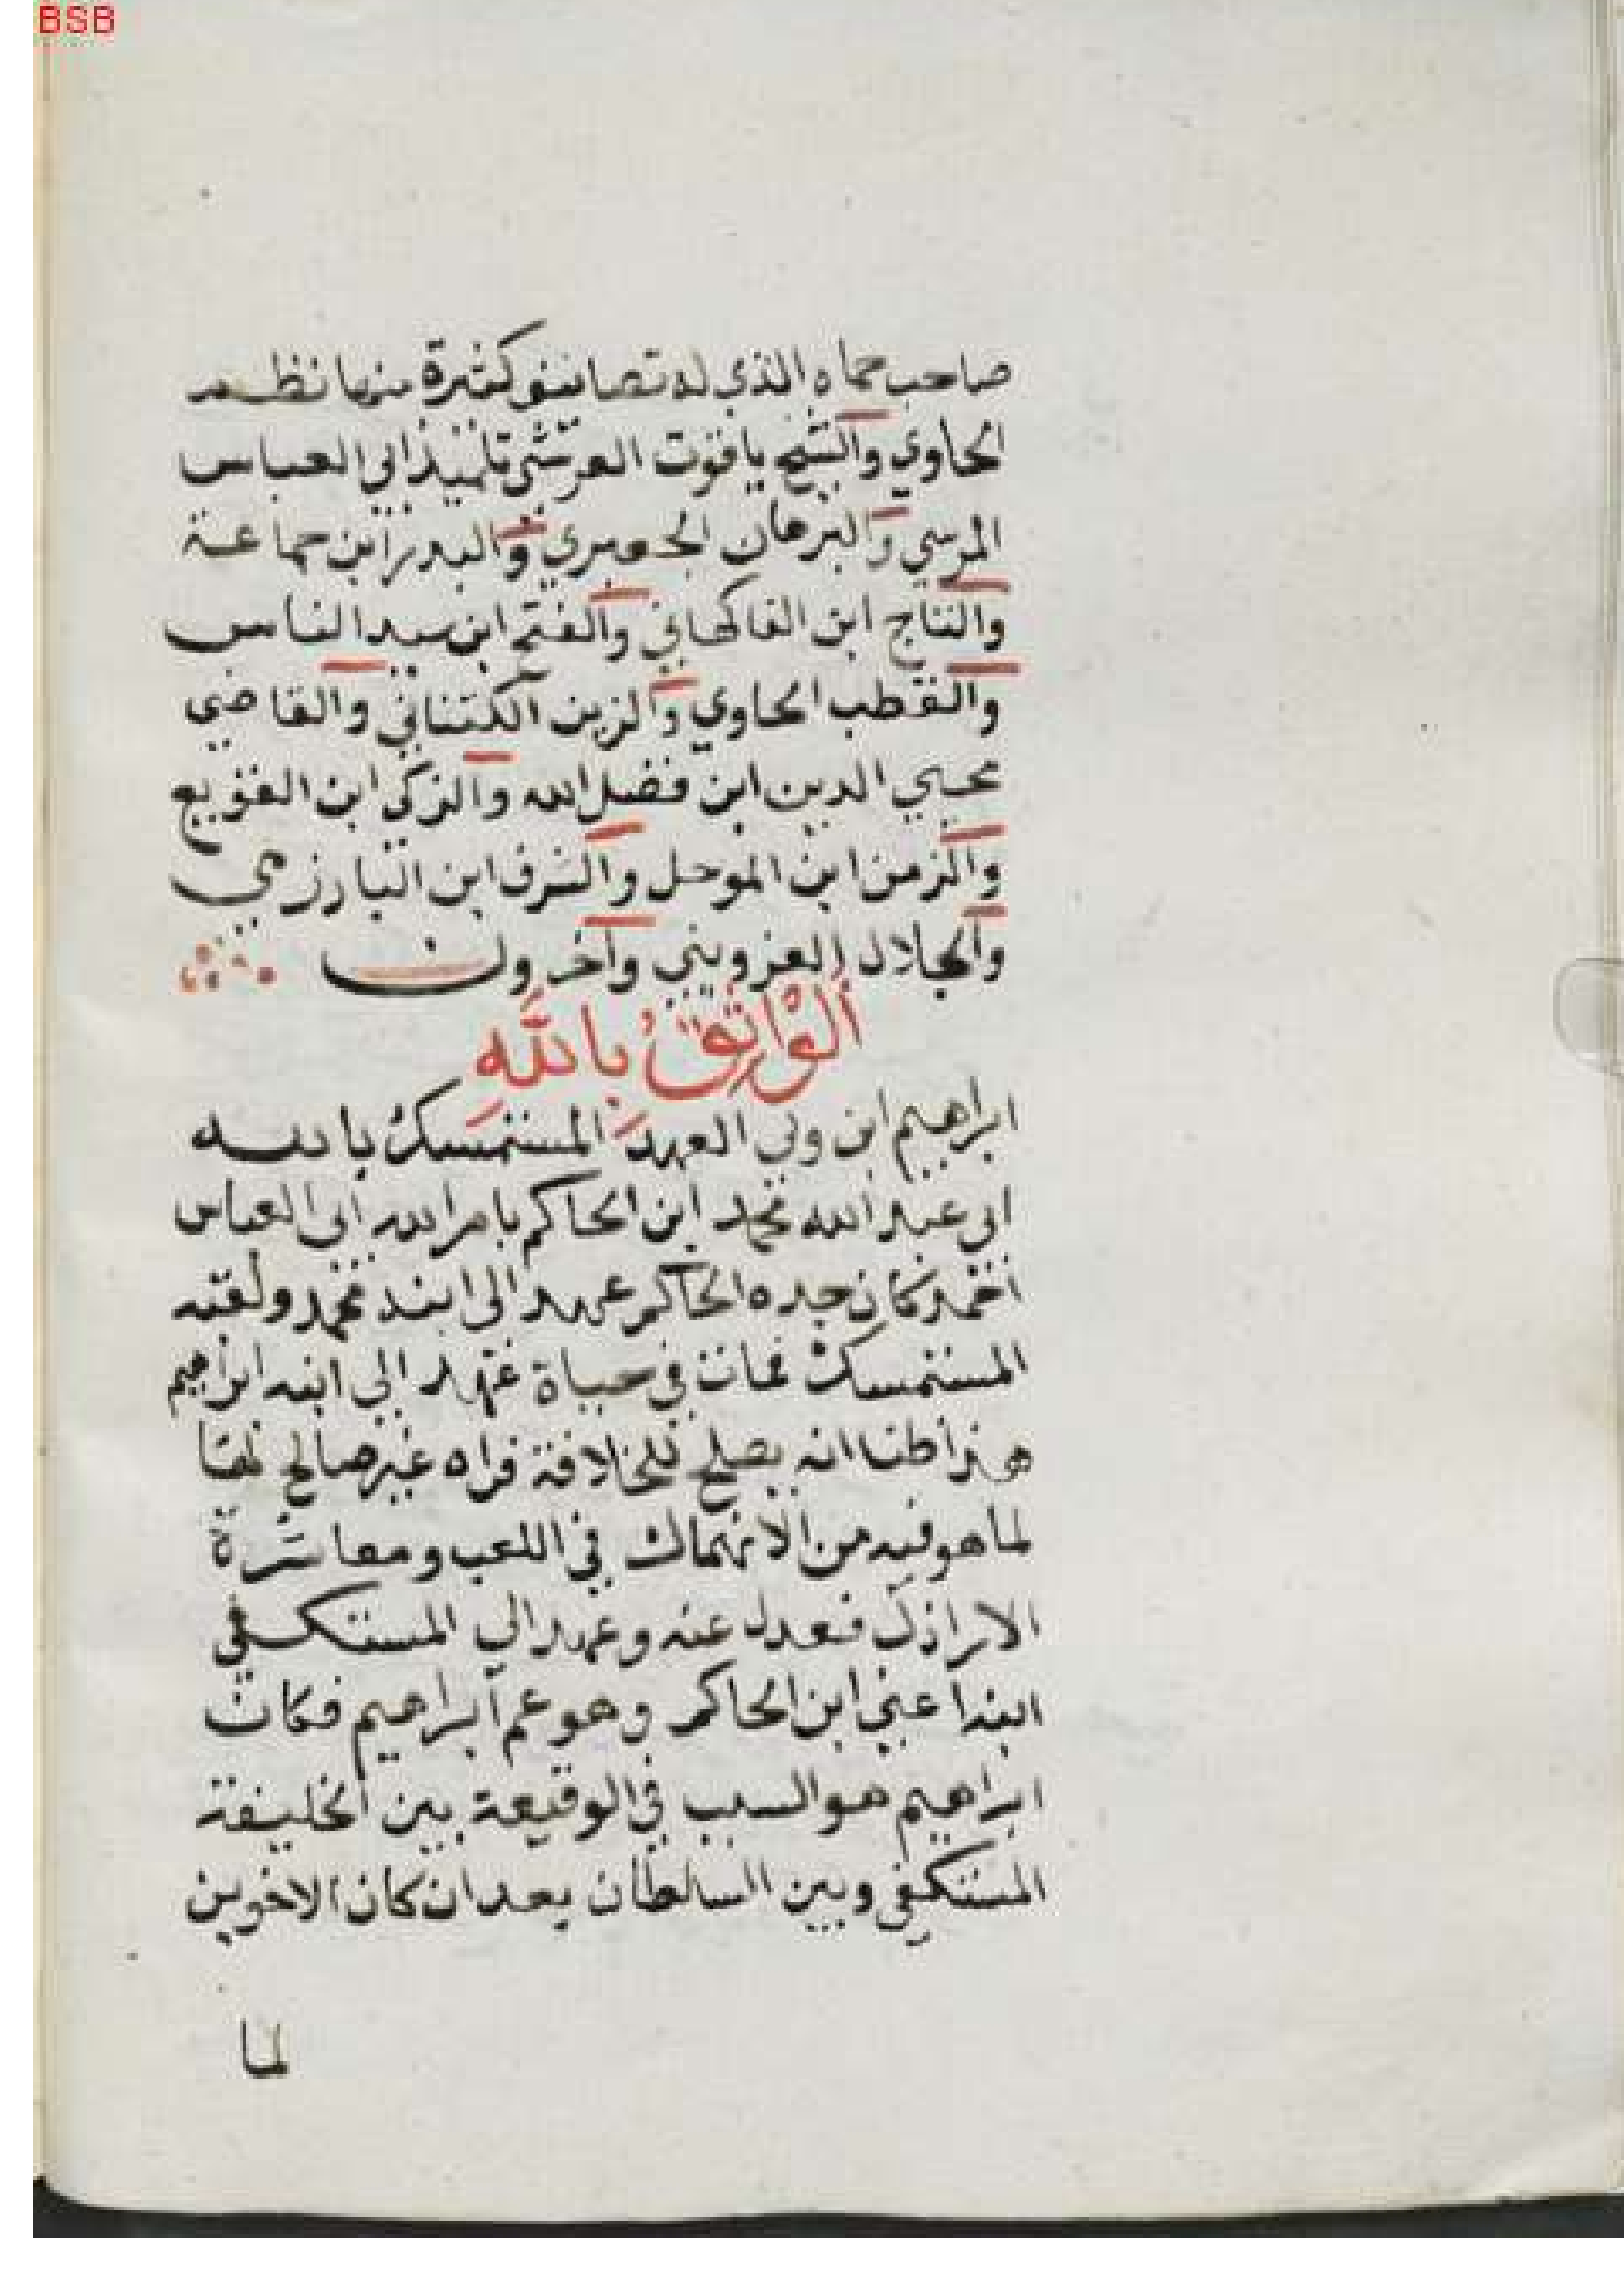 BSB
صاحب حماه الذي له تصانيف كثيرة منها نظم
الحاوي والشيخ ياقوت العرشي تلميذ ابي العباس
المرسي والبرهان الجعبري والبدر ابن جماعة
والتاج ابن الفاكهاني والفتح ابن سيد الناس
والقطب الحاوي والزين الكتناني والقاضي
محيي الدين ابن فضل الله والزكي ابن القويع
والزين ابن المرحل والشرف ابن البارزي
والجلال القزويني وآخرون
الواثق بالله
ابراهيم ابن ولي العهد المستمسك بالله
ابي عبد الله محمد ابن الحاكم بامر الله ابي العباس
احمد كان جده الحاكم عهد الى ابنه محمد ولقبه
المستمسك فمات في حياة عهد الى ابنه ابراهيم
هذا ظنا انه يصلح للخلافة فراه غير صالح لها
لما هو فيه من الانهماك في اللعب ومعاشرة
الاراذل فعدل عنه وعهد الي المستكفي
ابنه اعني ابن الحاكم وهو عم ابراهيم فكان
ابراهيم هو السبب في الوقيعة بين الخليفة
المستكفي وبين السلطان بعد ان كان الاخوين
لما